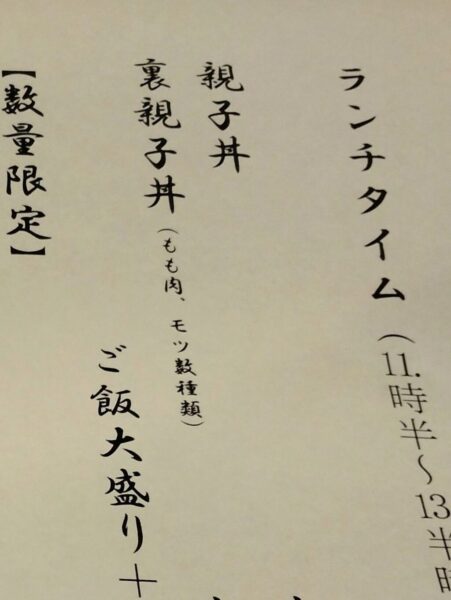 ランチタイム（11.時半～13半時
親子丼
裏親子丼（もも肉、モツ数種類）
ご飯大盛り＋
【数量限定】